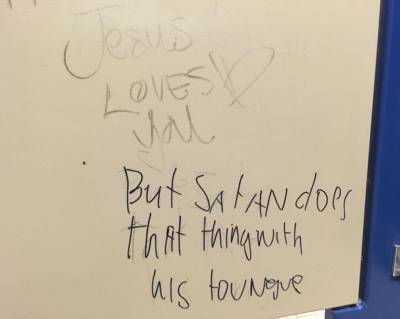 Jesus
LOVES!
you
But SAtAN does
that thing with
his toungue